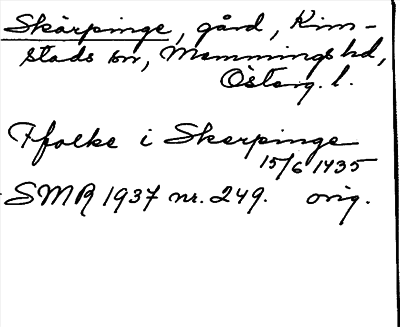 Skärpinge, gård, Kim-
stads sn, Memmings hd,
Östерg. l.
Ffolke i Skerpinge
15/6 1435
SMR 1937 nr. 249. orig.